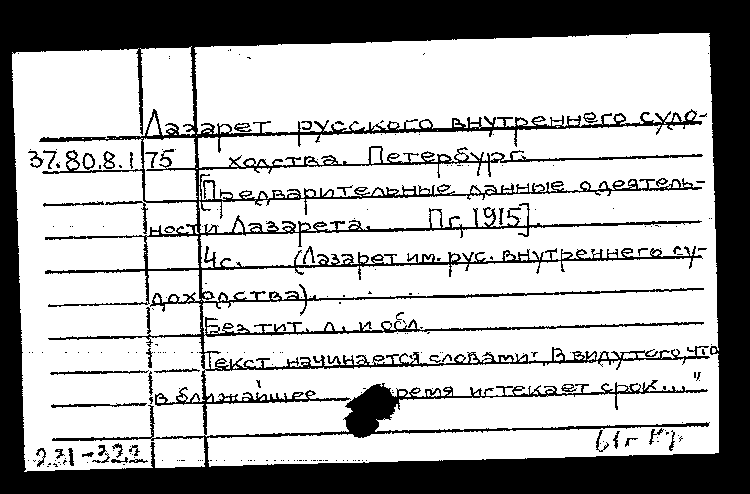 Лазарет русского внутреннего судо-
37.80.8.175 ходства. Петербург.
[Предварительные данные о деятель-
ности Лазарета. Пг, 1915].
4с. (Лазарет им. рус. внутреннего су-
доходства).
Без тит. л. и обл.
Текст начинается словами: "В виду того, что
в ближайшее время истекает срок..."
231-322